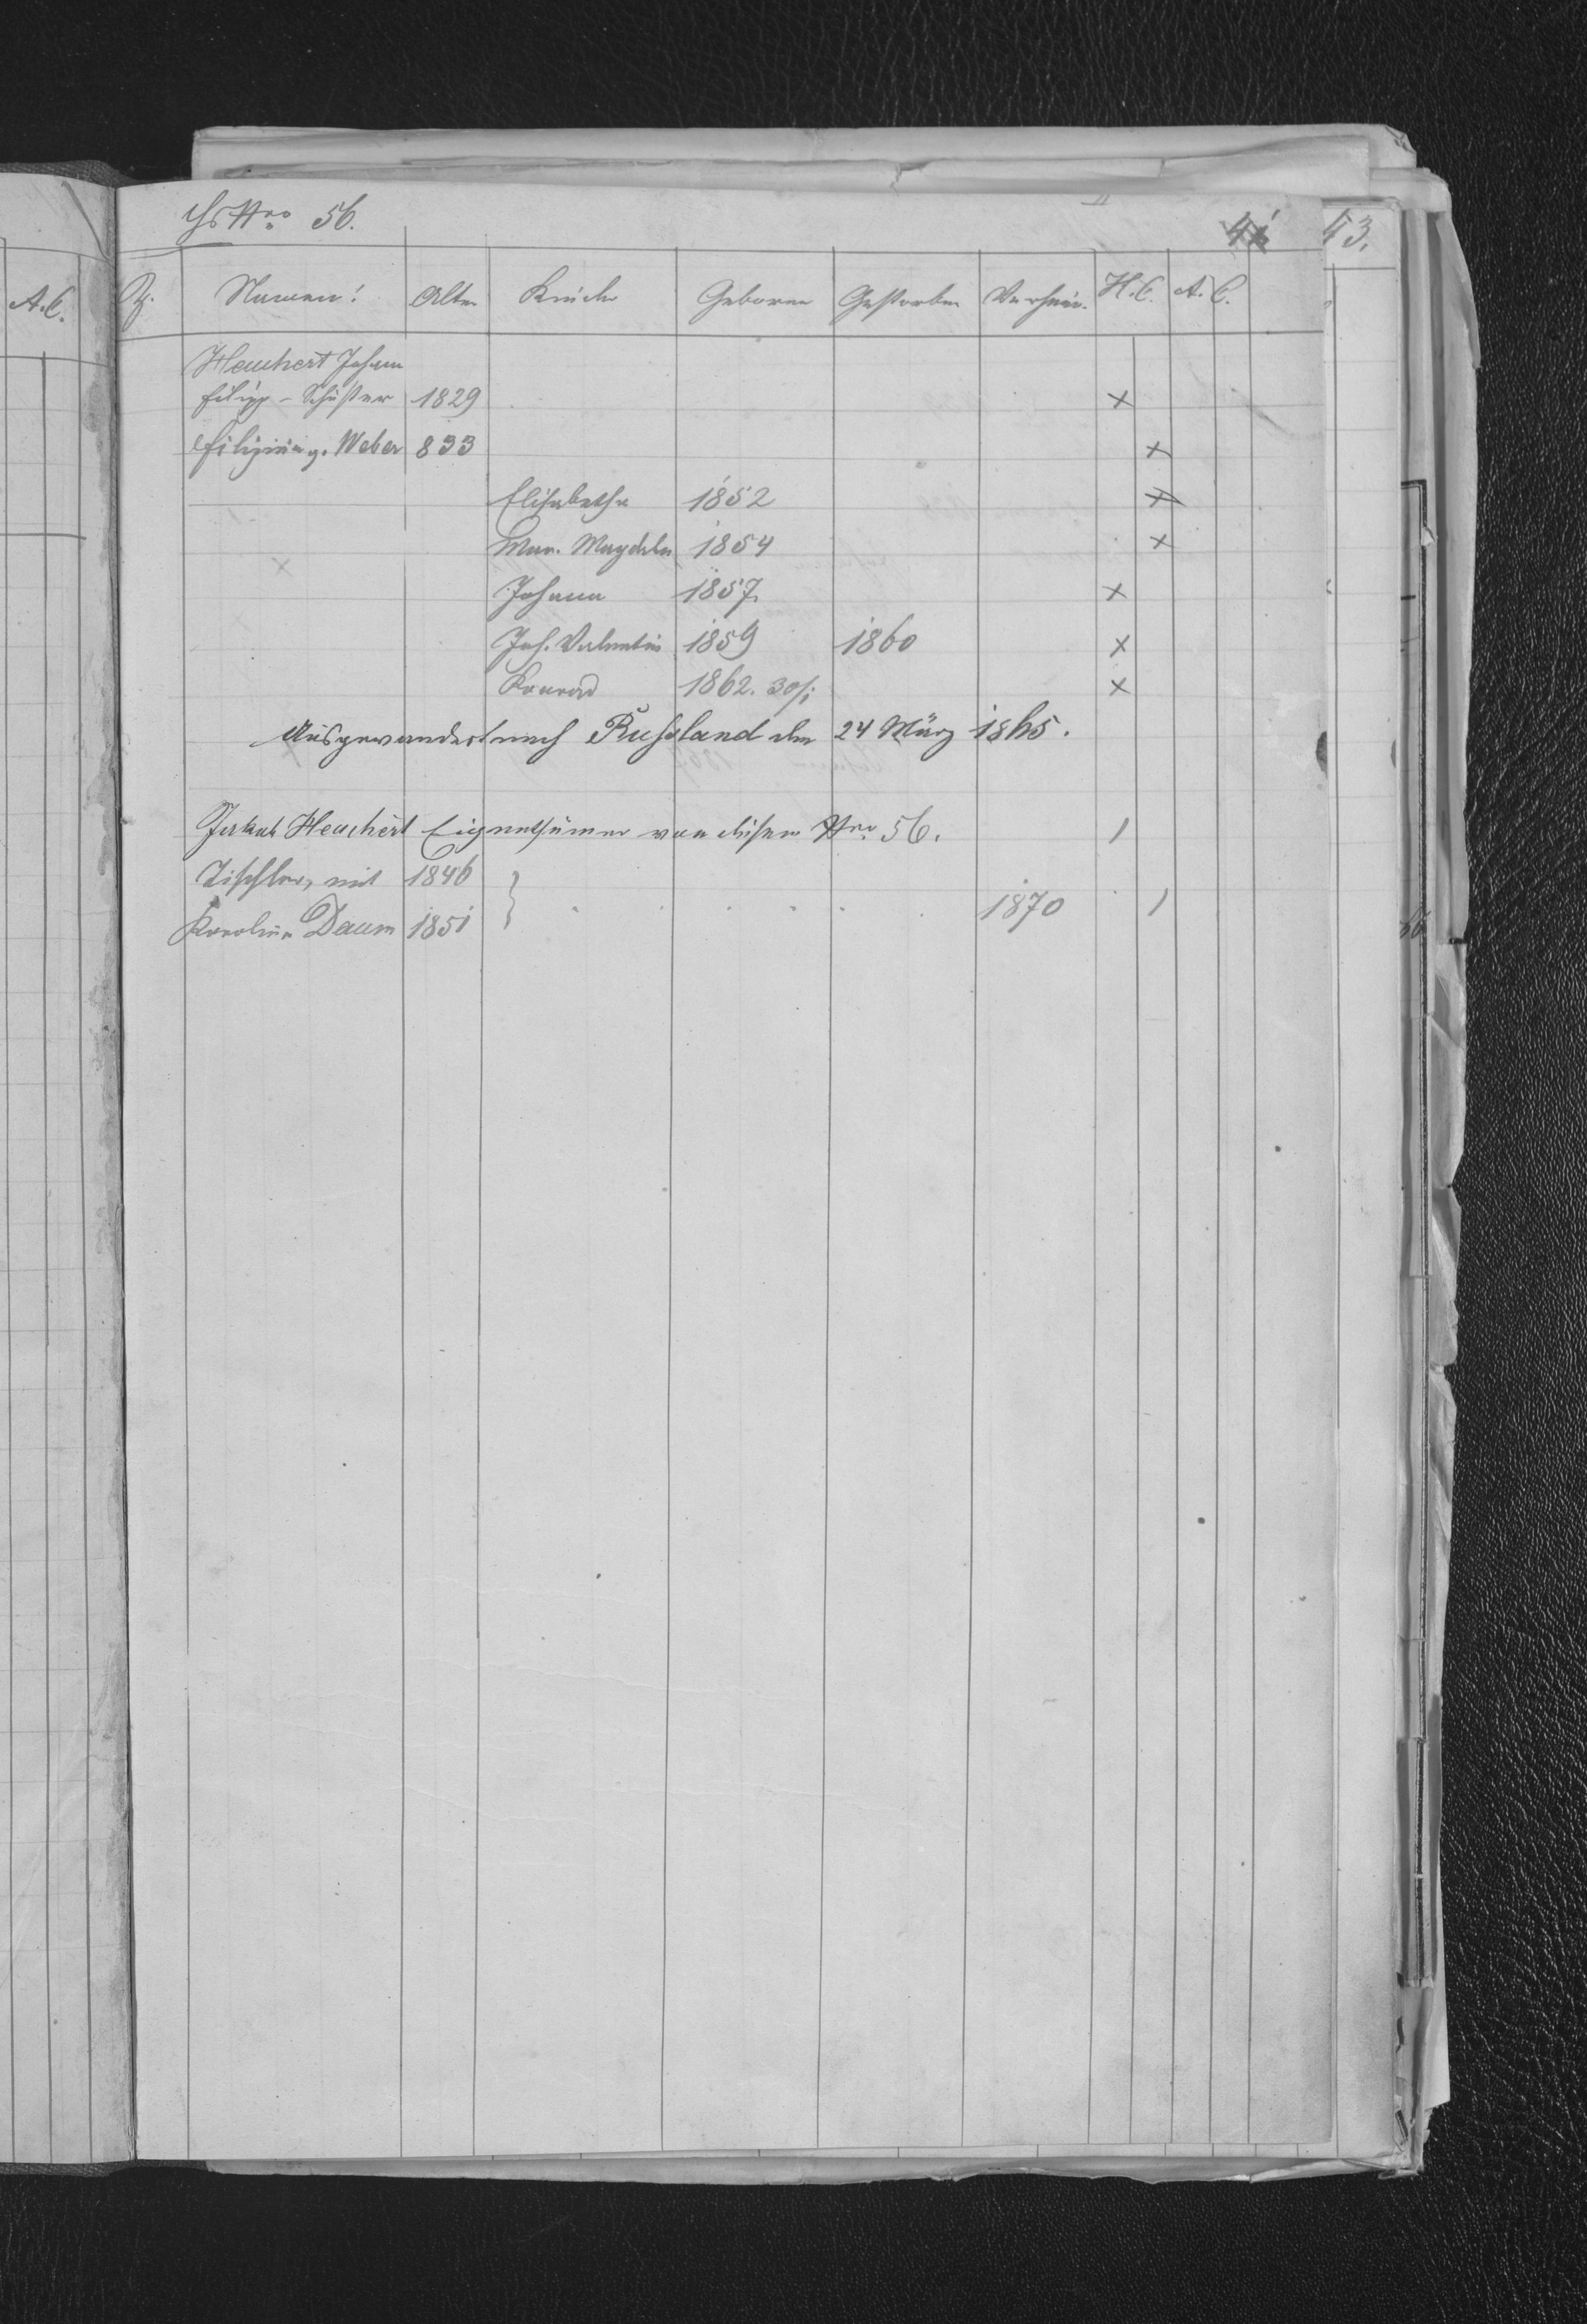 Hs Nro 56.
41 43.
A.C.
Z. Namen: Alter Kinder Geboren Gestorben Verheir. H.C. A.C.
Heuchert Johann
Filipp - Schuster 1829 x
Filipina g. Weber 833 x
Elisabetha 1852 x
Mar. Magdalen 1854 x
Johann 1857 x
Joh. Valentin 1859 1860 x
Konrad 1862. 30/1 x
Ausgewandert nach Russland den 24 März 1865.
Jakob Heuchert Eigenthümer von diesem Nro 56. /
Tischler, mit 1846
Karolina Daum 1851 } 1870 /